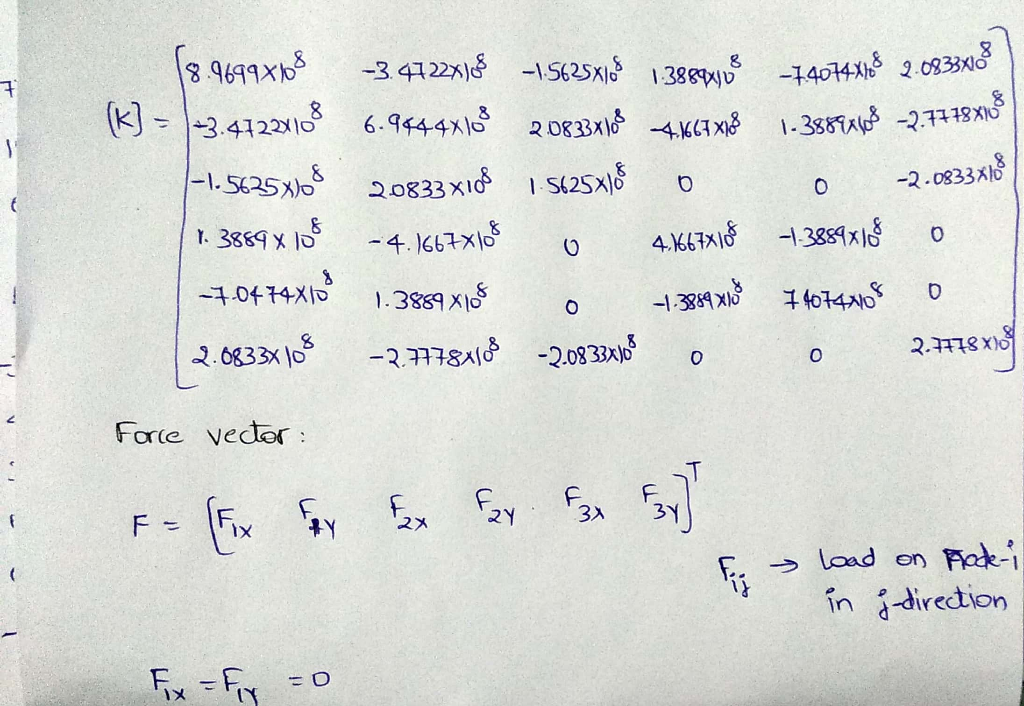 8.9699×10⁸ -3.4722×10⁸ -1.5625×10⁸ 1.3889×10⁸ -7.4074×10⁸ 2.0833×10⁸
[K] = -3.4722×10⁸ 6.9444×10⁸ 2.0833×10⁸ -4.1667×10⁸ 1.3889×10⁸ -2.7778×10⁸
-1.5625×10⁸ 2.0833×10⁸ 1.5625×10⁸ 0 0 -2.0833×10⁸
1.3889×10⁸ -4.1667×10⁸ 0 4.1667×10⁸ -1.3889×10⁸ 0
-7.0474×10⁸ 1.3889×10⁸ 0 -1.3889×10⁸ 7.4074×10⁸ 0
2.0833×10⁸ -2.7778×10⁸ -2.0833×10⁸ 0 0 2.7778×10⁸
Force vector :
F = [F1x F1y F2x F2y F3x F3y]ᵀ
Fij → load on node-i
in j-direction
F1x = F1y = 0